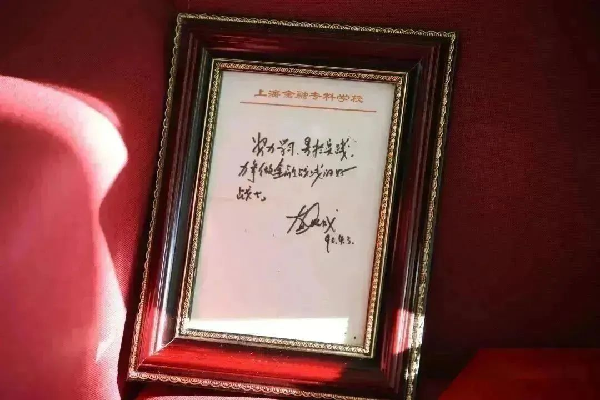 上海金融专科学校
努力学习、勇于实践，
力争做金融战线的一
战士。
90.4.3.